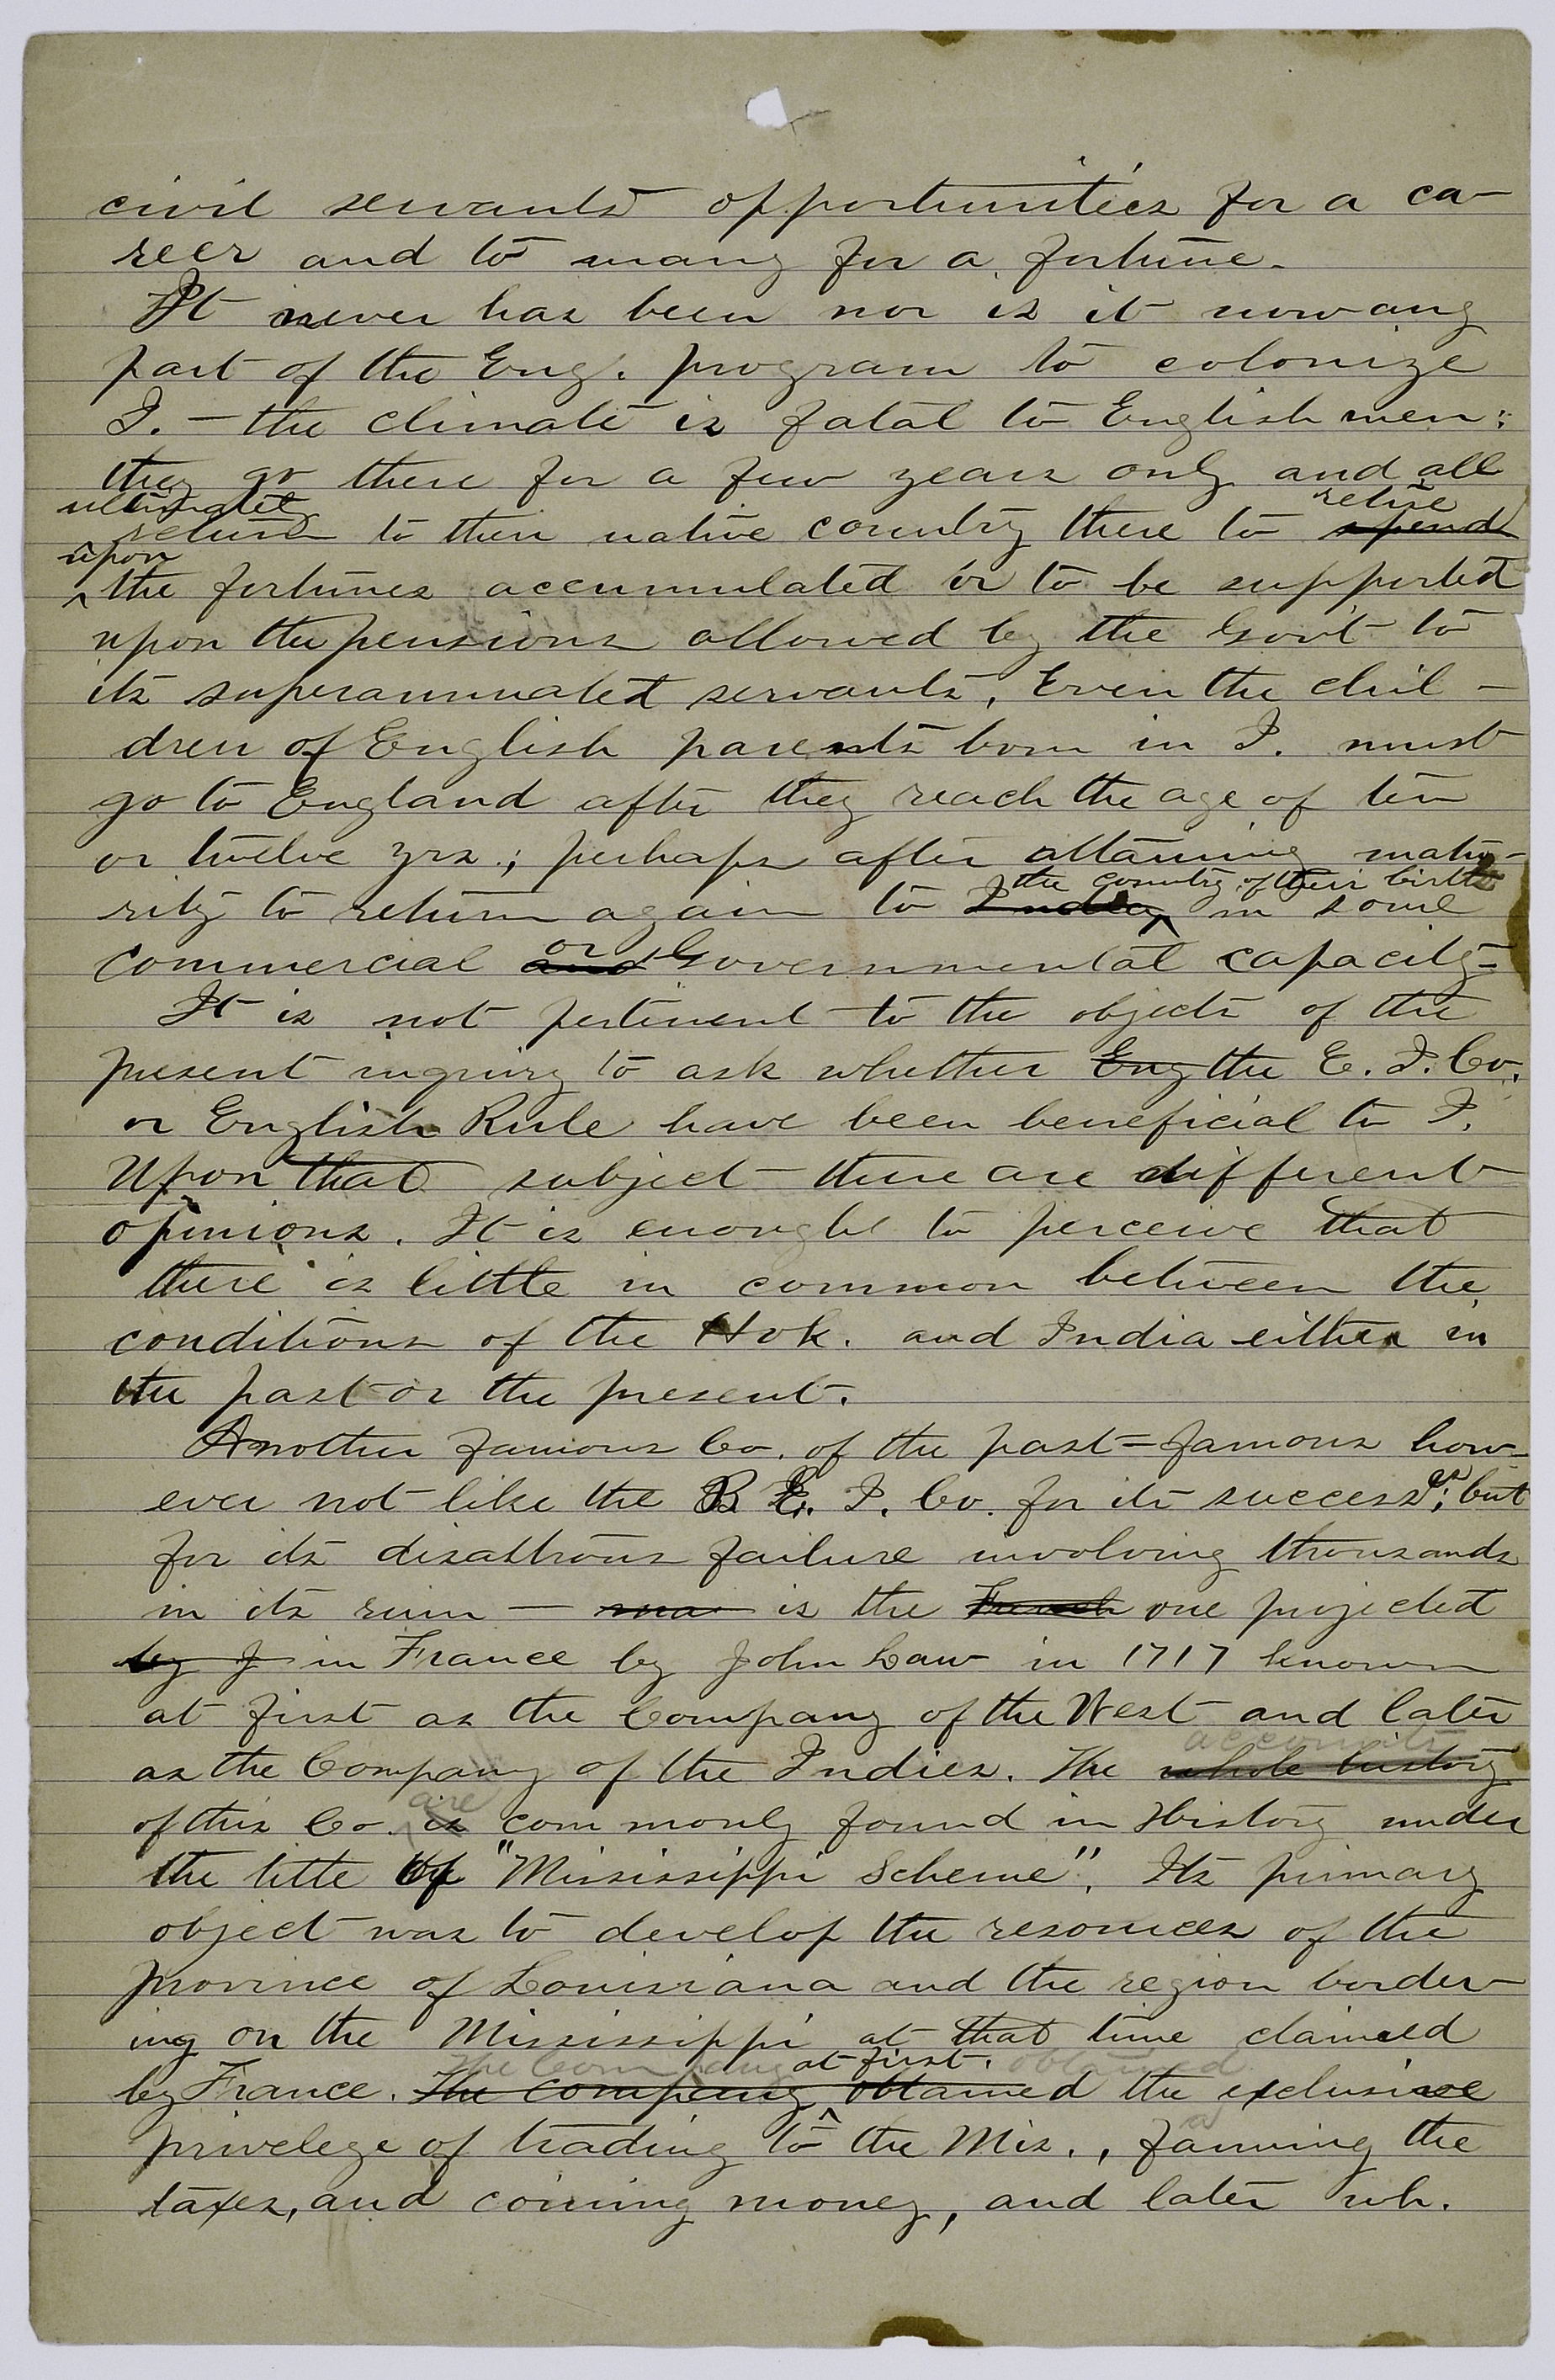 civil servants opportunities for a ca-
reer and to many for a fortune.
It never has been nor is it now any
part of the Eng. program to colonize
I. — the climate is fatal to English men;
they go there for a few years only and all
ultimately retire
return to their native country there to spend
upon
the fortunes accumulated or to be supported
upon the pensions allowed by the Gov't to
its superannuated servants. Even the chil-
dren of English parents born in I. must
go to England after they reach the age of ten
or twelve yrs.; perhaps after attaining matu-
the country of their birth
rity to return again to India in some
or
commercial and Governmental capacity-
It is not pertinent to the objects of the
present inquiry to ask whether Eng the E. I. Co.
or English Rule have been beneficial to I.
Upon that subject there are different
opinions. It is enough to perceive that
there is little in common between the
conditions of the Hok. and India either in
the past or the present.
Another famous Co. of the past = famous how-
ever not like the B E. I. Co. for its successes; but
for its disastrous failure involving thousands
in its ruin — was is the French one projected
by J in France by John Law in 1717 known
at first as the Company of the West and later
accounts
as the Company of the Indies. The whole history
are
of this Co. is commonly found in History under
the title of "Mississippi Scheme". Its primary
object was to develop the resources of the
province of Louisiana and the region border-
ing on the Mississippi at that time claimed
The Company at first obtained
by France. The company obtained the exclusive
privelege of trading to the Mis., farming the
taxes, and coining money, and later wh.